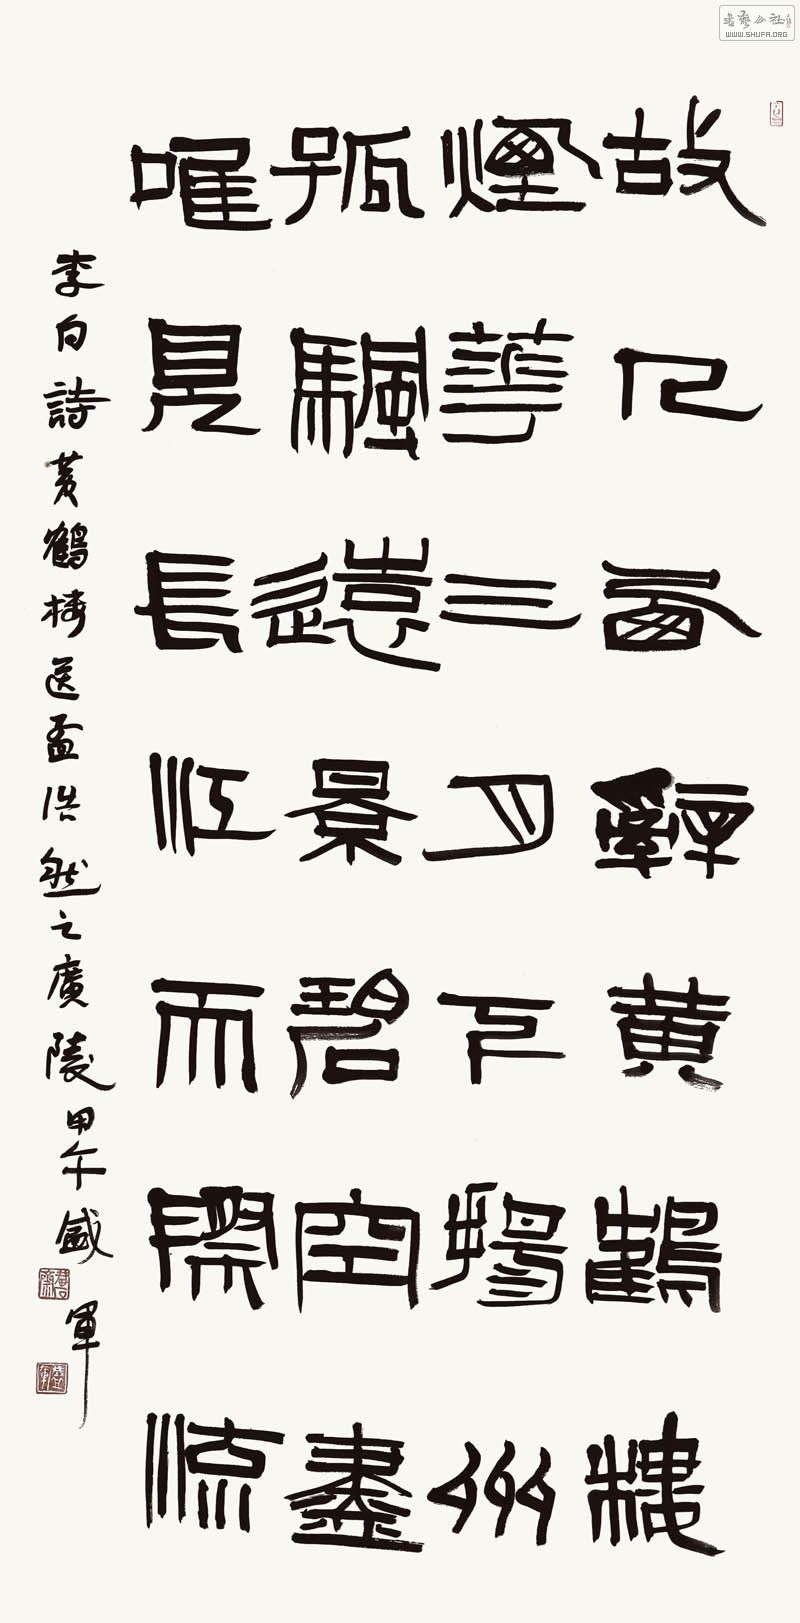 故人西辭黄鶴樓
煙華三月下揚州
孤颿遠景碧空盡
唯見長江天際流
李白詩黄鶴樓送孟浩然之廣陵甲午盛軍
書藝公社
WWW.SHUFA.ORG